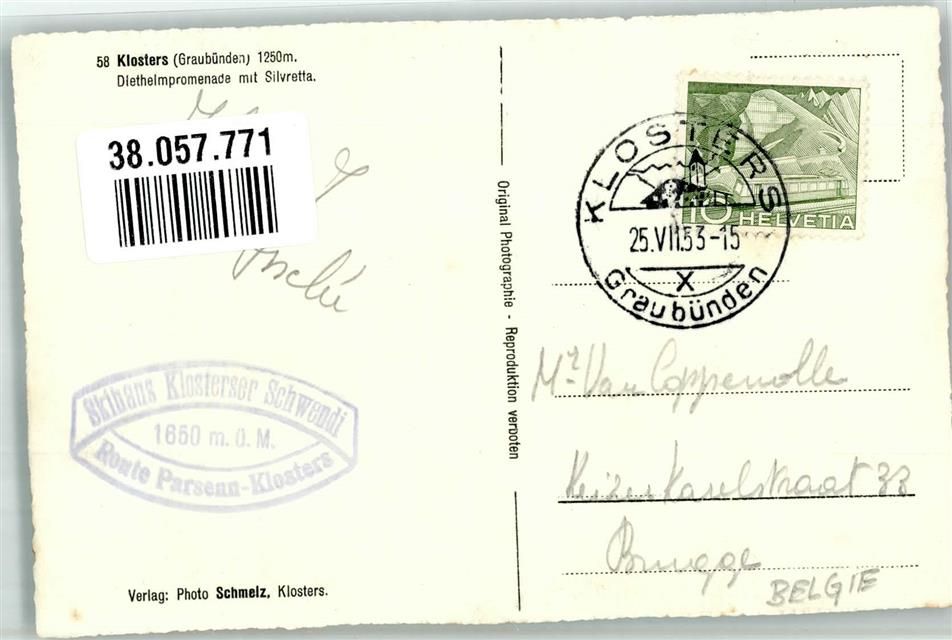 58 Klosters (Graubünden) 1250m.
Diethelmpromenade mit Silvretta.
38.057.771
Skihaus Klosterser Schwendi
1650 m. ü. M.
Route Parsenn-Klosters
Verlag: Photo Schmelz, Klosters.
Original Photographie - Reproduktion verboten
10 HELVETIA
KLOSTERS
25.VII.53-15
X
Graubünden
Mr Van Coppenolle
Keizer Karelstraat 33
Brugge
BELGIE